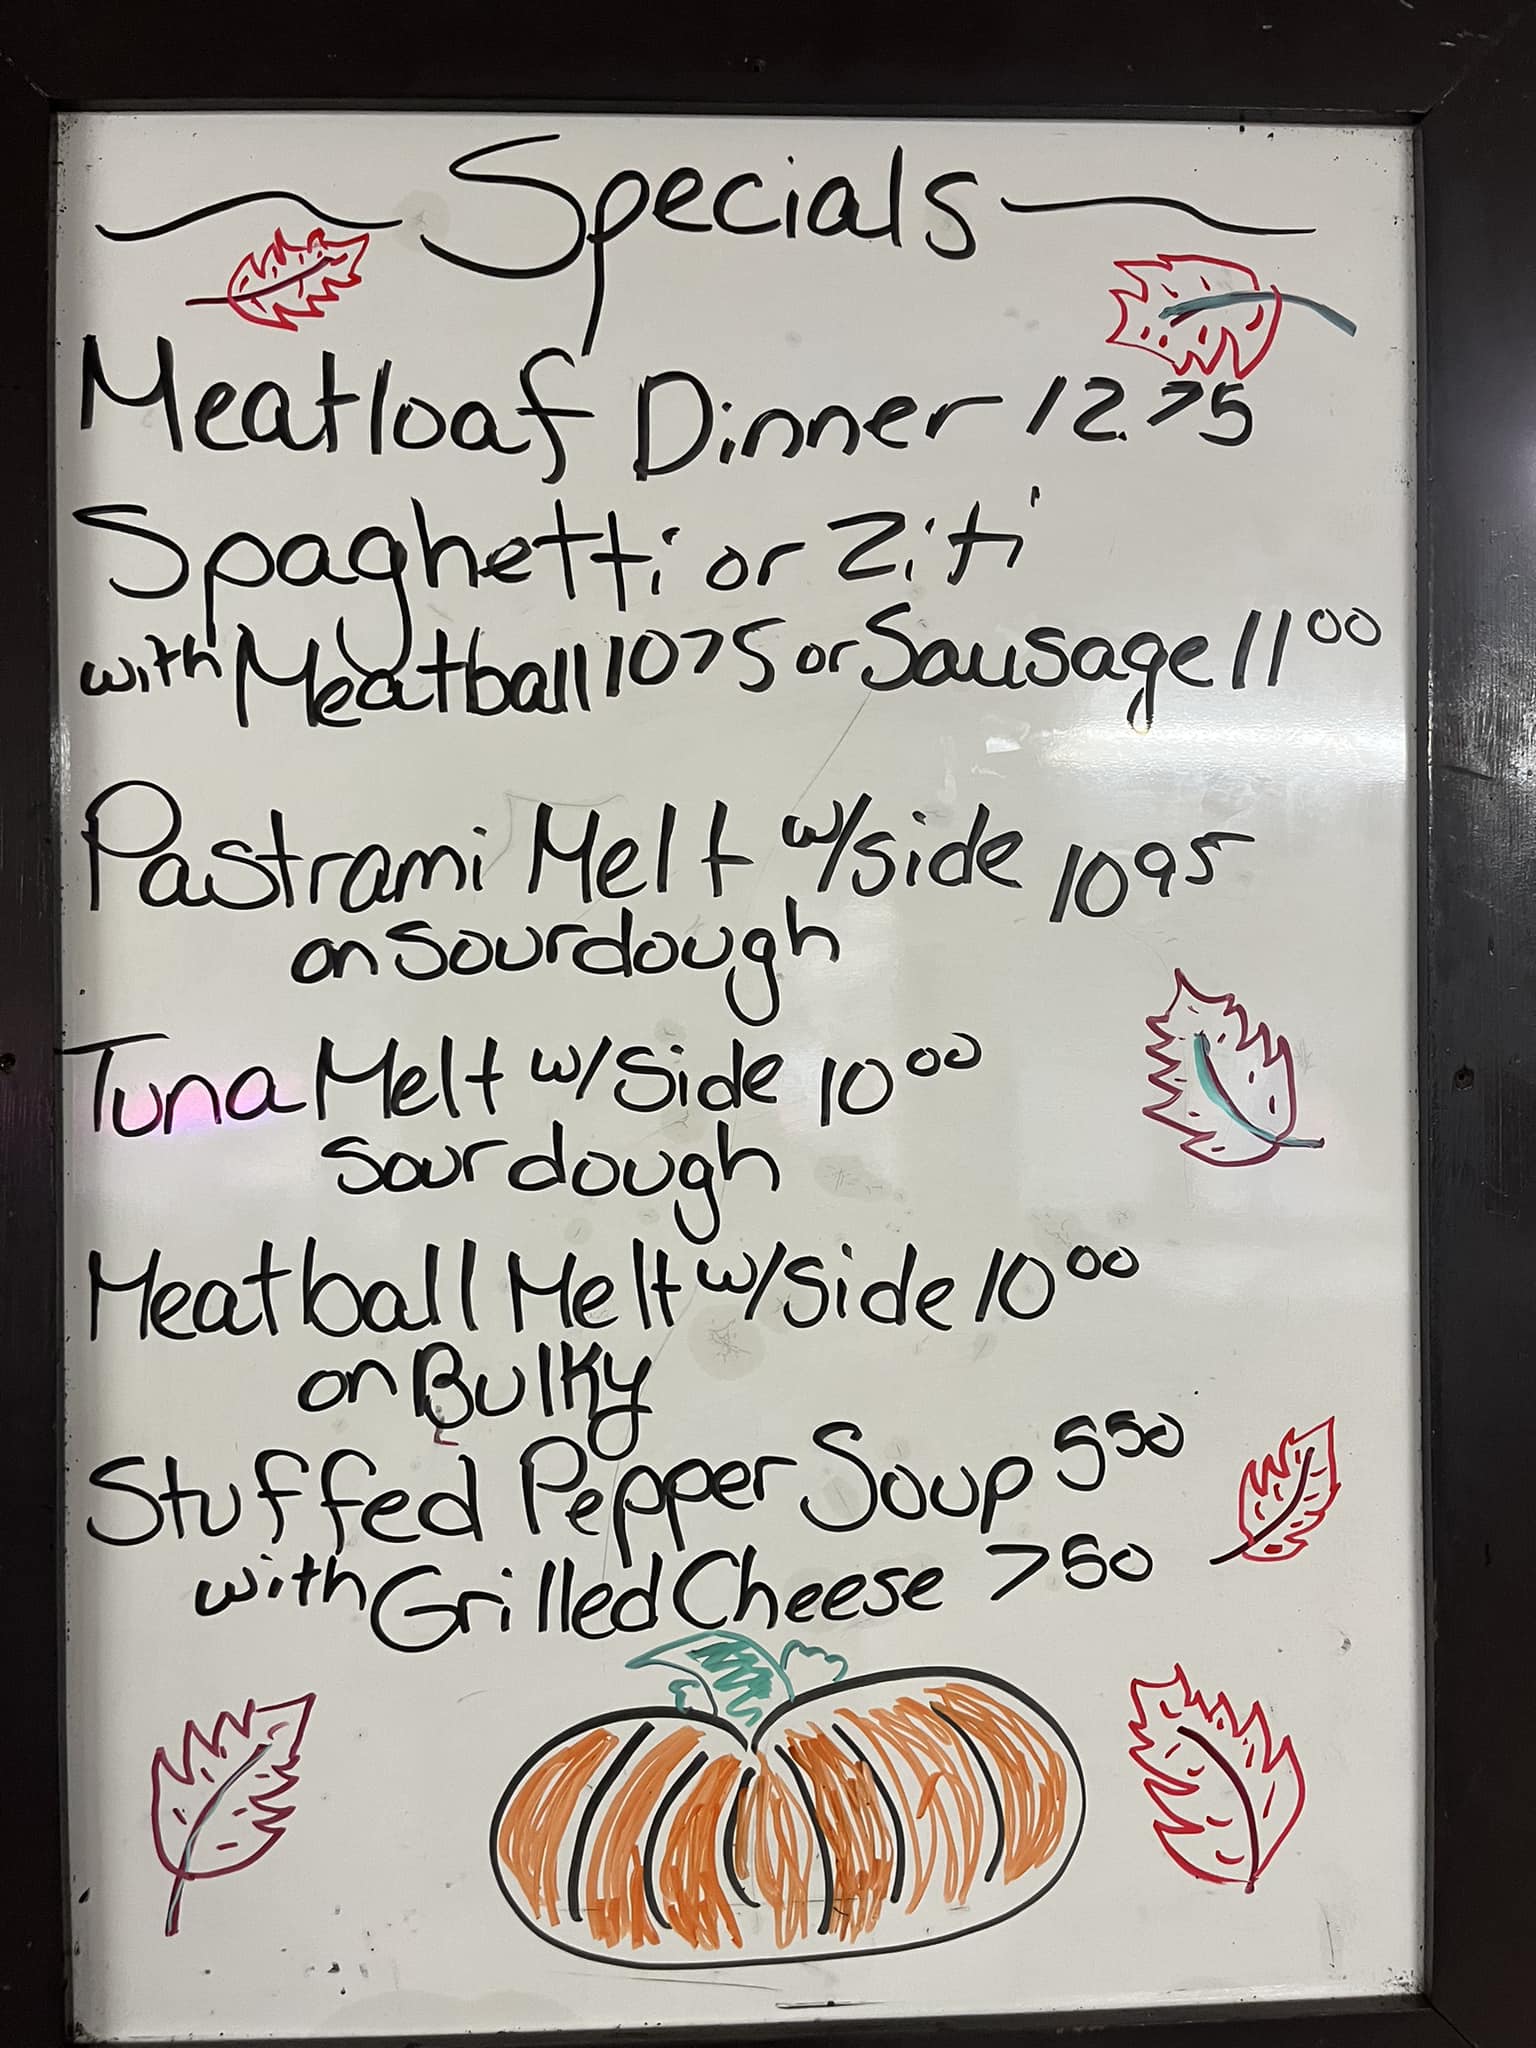 Specials
Meatloaf Dinner 12.75
Spaghetti or Ziti
with Meatball 1075 or Sausage 1100
Pastrami Melt w/side 1095
on sourdough
Tuna Melt w/Side 1000
sourdough
Meatball Melt w/Side 1000
on Bulky
Stuffed Pepper Soup 550
with Grilled Cheese 750